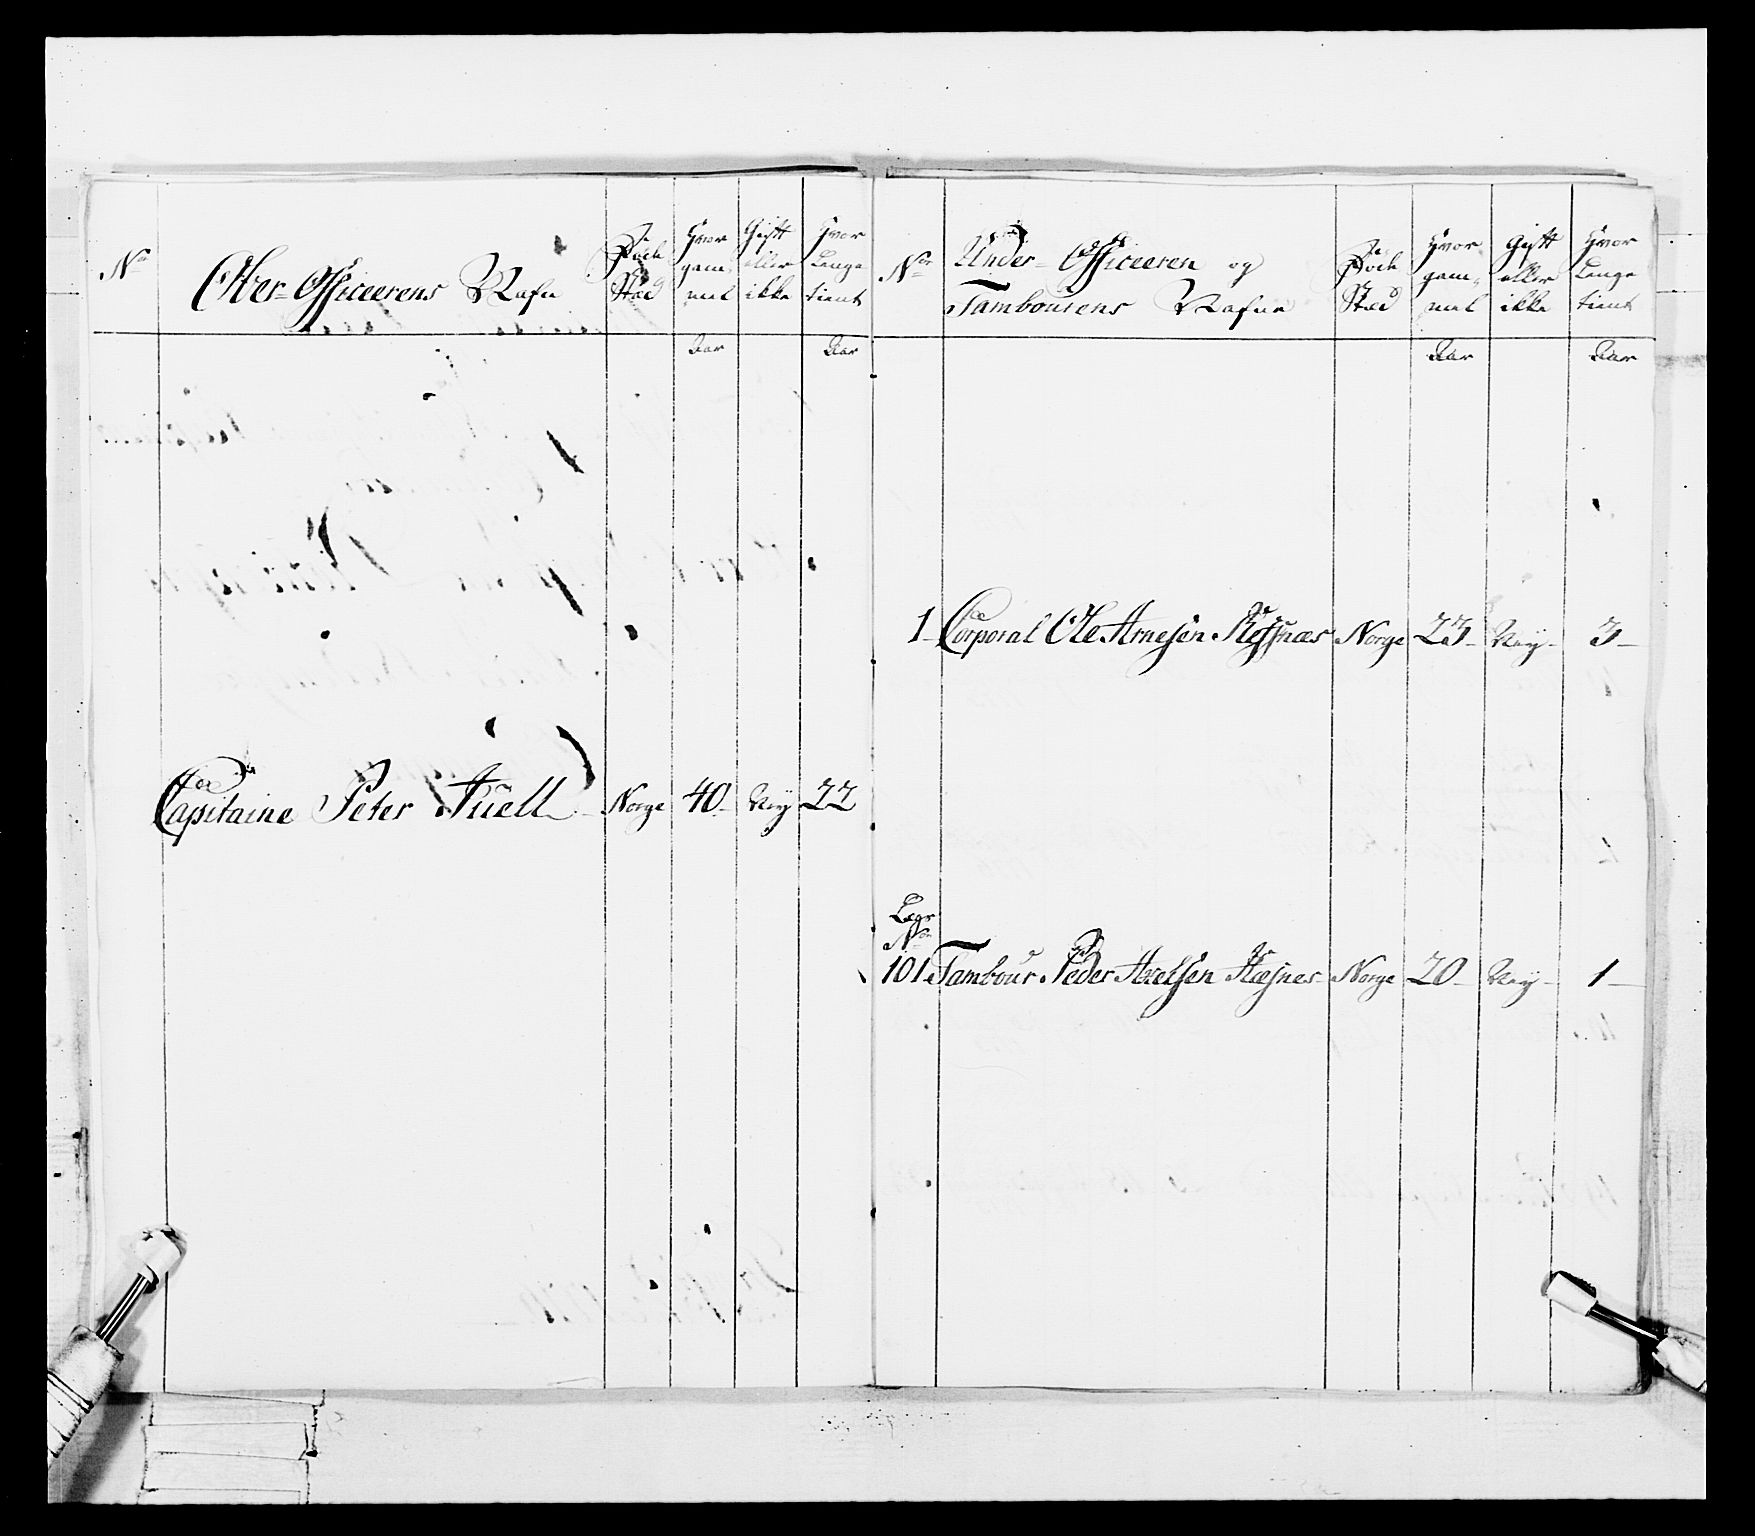 No
Ober-Officeerens Nafn
Föde Stæd
Hvor gam- mel
Gift eller ikke
Hvor Længe tient
Aar
Aar
Capitaine Peter Juell
Norge
40
Ney
22
No
Under-Officeeren og
Tambourens Nafne
Föde Stæd
Hvor gam- mel
Gift eller ikke
Hvor Længe tient
Aar
Aar
1 Corporal Ole Arnesen
Norge
23
Ney
3
Lægs
No
101 Tambour Peder Axelsen
Norge
20
Ney
1